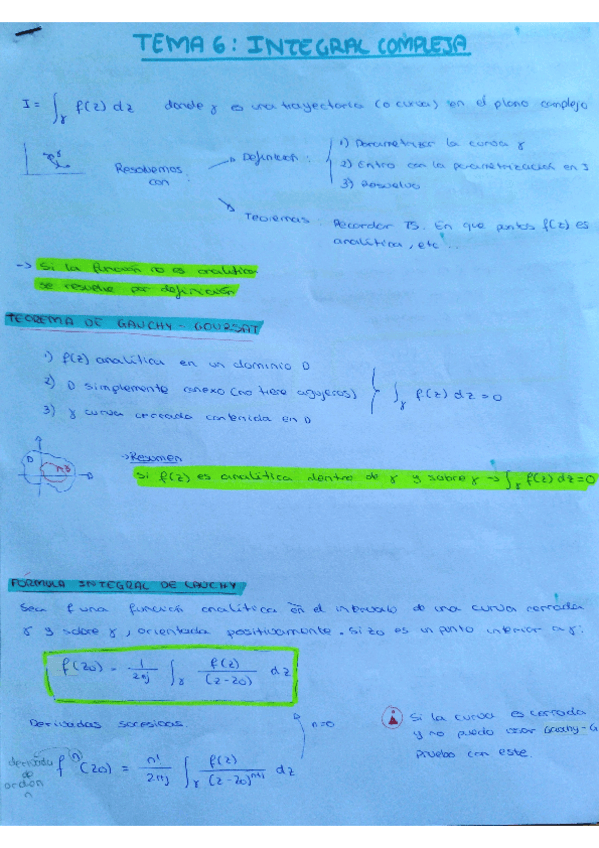 TEMA 6: INTEGRAL COMPLEJA
I = ∫γ f(z) dz donde γ es una trayectoria (o curva) en el plano complejo
γ
Resolvemos con:
Definición:
1) Parametrizar la curva γ
2) Entro con la parametrización en I
3) Resuelvo
Teoremas: Recordar T5. En que puntos f(z) es
analítica, etc...
→ Si la función no es analítica
se resuelve por definición
TEOREMA DE CAUCHY - GOURSAT
1) f(z) analítica en un dominio D
2) D simplemente conexo (no tiene agujeros)
3) γ curva cerrada contenida en D
∫γ f(z) dz = 0
D
→ Resumen
Si f(z) es analítica dentro de γ y sobre γ → ∫γ f(z) dz = 0
FÓRMULA INTEGRAL DE CAUCHY
Sea f una función analítica en el intervalo de una curva cerrada
γ y sobre γ, orientada positivamente. Si z0 es un punto interior a γ:
f(z0) = 1/2πj ∫γ f(z)/(z-z0) dz
Derivadas sucesivas.
n=0
Si la curva es cerrada
y no puedo usar Cauchy-G
pruebo con este.
derivada de orden n
f^(n)(z0) = n!/2πj ∫γ f(z)/(z-z0)^(n+1) dz